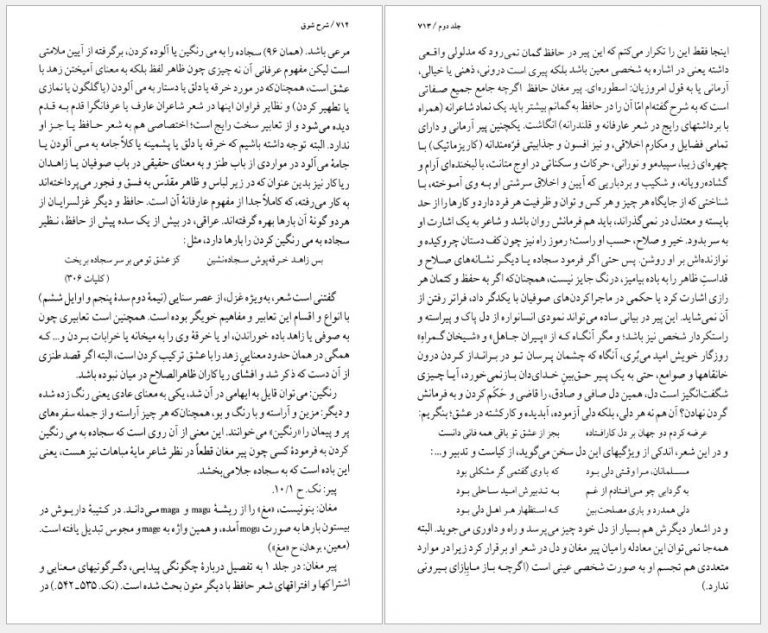 ۷۱۲ / شرح شوق
مرعی باشد. (همان ۹۶) سجاده را به می رنگین یا آلوده کردن، برگرفته از آیین ملامتی
است لیکن مفهوم عرفانی آن نه چیزی چون ظاهر لفظ بلکه به معنای آمیختن زهد با
عشق است، همچنان‌که در مورد خرقه یا دلق یا دستار به می آلودن (یا گلگون یا نمازی
یا تطهیر کردن) و نظایر فراوان اینها در شعر شاعران عارف یا عرفانگرا قدم به قدم
دیده می‌شود و از تعابیر سخت رایج است؛ اختصاصی هم به شعر حافظ یا جز او
ندارد. البته توجه داشته باشیم که خرقه یا دلق یا پشمینه یا کلاً جامه به می آلودن یا
جامۀ می‌آلود در مواردی از باب طنز و به معنای حقیقی در باب صوفیان یا زاهدان
ریاکار نیز بدین عنوان که در زیر لباس و ظاهر مقدّس به فسق و فجور می‌پرداخته‌اند
به کار می‌رفته، که کاملاً جدا از مفهوم عارفانۀ آن است. حافظ و دیگر غزلسرایان از
هر دو گونۀ آن بارها بهره گرفته‌اند. عراقی، در بیش از یک سده پیش از حافظ، نظیر
سجاده به می رنگین کردن را بارها دارد، مثل:
بس زاهد خرقه‌پوش سجاده‌نشین کز عشق تو می بر سر سجاده بریخت
(کلیات ۳۰۶)
گفتنی است شعر، به‌ویژه غزل، از عصر سنایی (نیمۀ دوم سدۀ پنجم و اوایل ششم)
با انواع و اقسام این تعابیر و مفاهیم خویگر بوده است. همچنین است تعابیری چون
به صوفی یا زاهد باده خوراندن، او یا خرقۀ وی را به میخانه یا خرابات بردن و... که
همگی در همان حدود معنایی زهد را با عشق ترکیب کردن است، البته اگر قصد طنزی
از آن دست که ذکر شد و افشای ریاکاران ظاهرالصلاح در میان نبوده باشد.
رنگین: می‌توان قایل به ایهامی در آن شد، یکی به معنای عادی یعنی رنگ زده شده
و دیگر: مزین و آراسته و با رنگ و بو، همچنان‌که هر چیز آراسته و از جمله سفره‌های
پر و پیمان را «رنگین» می‌خوانند. این معنی از آن روی است که سجاده به می رنگین
کردن به فرمودۀ کسی چون پیر مغان قطعاً در نظر شاعر مایۀ مباهات نیز هست، یعنی
این باده است که به سجاده جلا می‌بخشد.
پیر: نک. ح ۱۰/۱.
مغان: بنونیست، «مغ» را از ریشۀ magu و maga می‌داند. در کتیبۀ داریوش در
بیستون بارها به صورت mogu آمده، و همین واژه به mage و مجوس تبدیل یافته است.
(معین، برهان، ح «مغ»)
پیر مغان: در جلد ۱ به تفصیل دربارۀ چگونگی پیدایی، دگرگونیهای معنایی و
اشتراکها و افتراقهای شعر حافظ با دیگر متون بحث شده است. (نک. ۵۳۵ـ۵۴۲.) در
جلد دوم / ۷۱۳
اینجا فقط این را تکرار می‌کنم که این پیر در حافظ گمان نمی‌رود که مدلولی واقعی
داشته یعنی در اشاره به شخصی معین باشد بلکه پیری است درونی، ذهنی یا خیالی،
آرمانی یا به قول امروزیان: اسطوره‌ای. پیر مغان حافظ اگرچه جامع جمیع صفاتی
است که به شرح گفته‌ام امّا آن را در حافظ به گمانم بیشتر باید یک نماد شاعرانه (همراه
با برداشتهای رایج در شعر عارفانه و قلندرانه) انگاشت. یکچنین پیر آرمانی و دارای
تمامی فضایل و مکارم اخلاقی، و نیز افسون و جذابیتی فرّه‌مندانه (کاریزماتیک) با
چهره‌ای زیبا، سپیدمو و نورانی، حرکات و سکناتی در اوج متانت، با لبخنده‌ای آرام و
گشاده‌رویانه، و شکیب و بردباریی که آیین و اخلاق سرشتی او به وی آموخته، با
شناختی که از جایگاه هر چیز و هر کس و توان و ظرفیت هر فرد دارد و کارها را از حد
بایسته و معتدل در نمی‌گذراند، باید هم فرمانش روان باشد و شاعر به یک اشارت او
به سر بدود. خیر و صلاح، حسب اوراست؛ رموز راه نیز چون کف دستان چروکیده و
نوازنده‌اش بر او روشن. پس حتی اگر فرمود سجاده یا دیگر نشانه‌های صلاح و
قداستِ ظاهر را به باده بیامیز، درنگ جایز نیست، همچنان‌که اگر به حفظ و کتمان هر
رازی اشارت کرد یا حکمی در ماجرا کردن‌های صوفیان با یکدگر داد، فراتر رفتن از
آن نمی‌شاید. این پیر در بیانی ساده می‌تواند نمودی انسانواره از دل پاک و پیراسته و
راستکردار شخص نیز باشد؛ و مگر آنگاه که از «پیران جاهل» و «شیخان گمراه»
روزگار خویش امید می‌بُری، آنگاه که چشمان پرسان تو در برانداز کردن درون
خانقاهها و صوامع، حتی به یک پیر حق‌بینِ خدای‌دان باز نمی‌خورد، آیا چیزی
شگفت‌انگیز است دل، همین دل صافی و صادق، را قاضی و حَکَم کردن و به فرمانش
گردن نهادن؟ آن هم نه هر دلی، بلکه دلی آزموده، آبدیده و کارکشته در عشق؛ بنگریم:
عرضه کردم دو جهان بر دل کارافتاده بجز از عشق تو باقی همه فانی دانست
و در این شعر، اندکی از ویژگیهای این دل سخن می‌گوید، از کیاست و تدبیر و...:
مسلمانان، مرا وقتی دلی بود که با وی گفتمی گر مشکلی بود
به گردابی چو می‌افتادم از غم به تدبیرش امید ساحلی بود
دلی همدرد و یاری مصلحت‌بین که استظهار هر اهل دلی بود
و در اشعار دیگرش هم بسیار از دل خود چیز می‌پرسد و راه و داوری می‌جوید. البته
همه‌جا نمی‌توان این معادله را میان پیر مغان و دل در شعر او برقرار کرد زیرا در موارد
متعددی هم تجسم او به صورت شخصی عینی است (اگرچه باز مابِازای بیرونی
ندارد.)